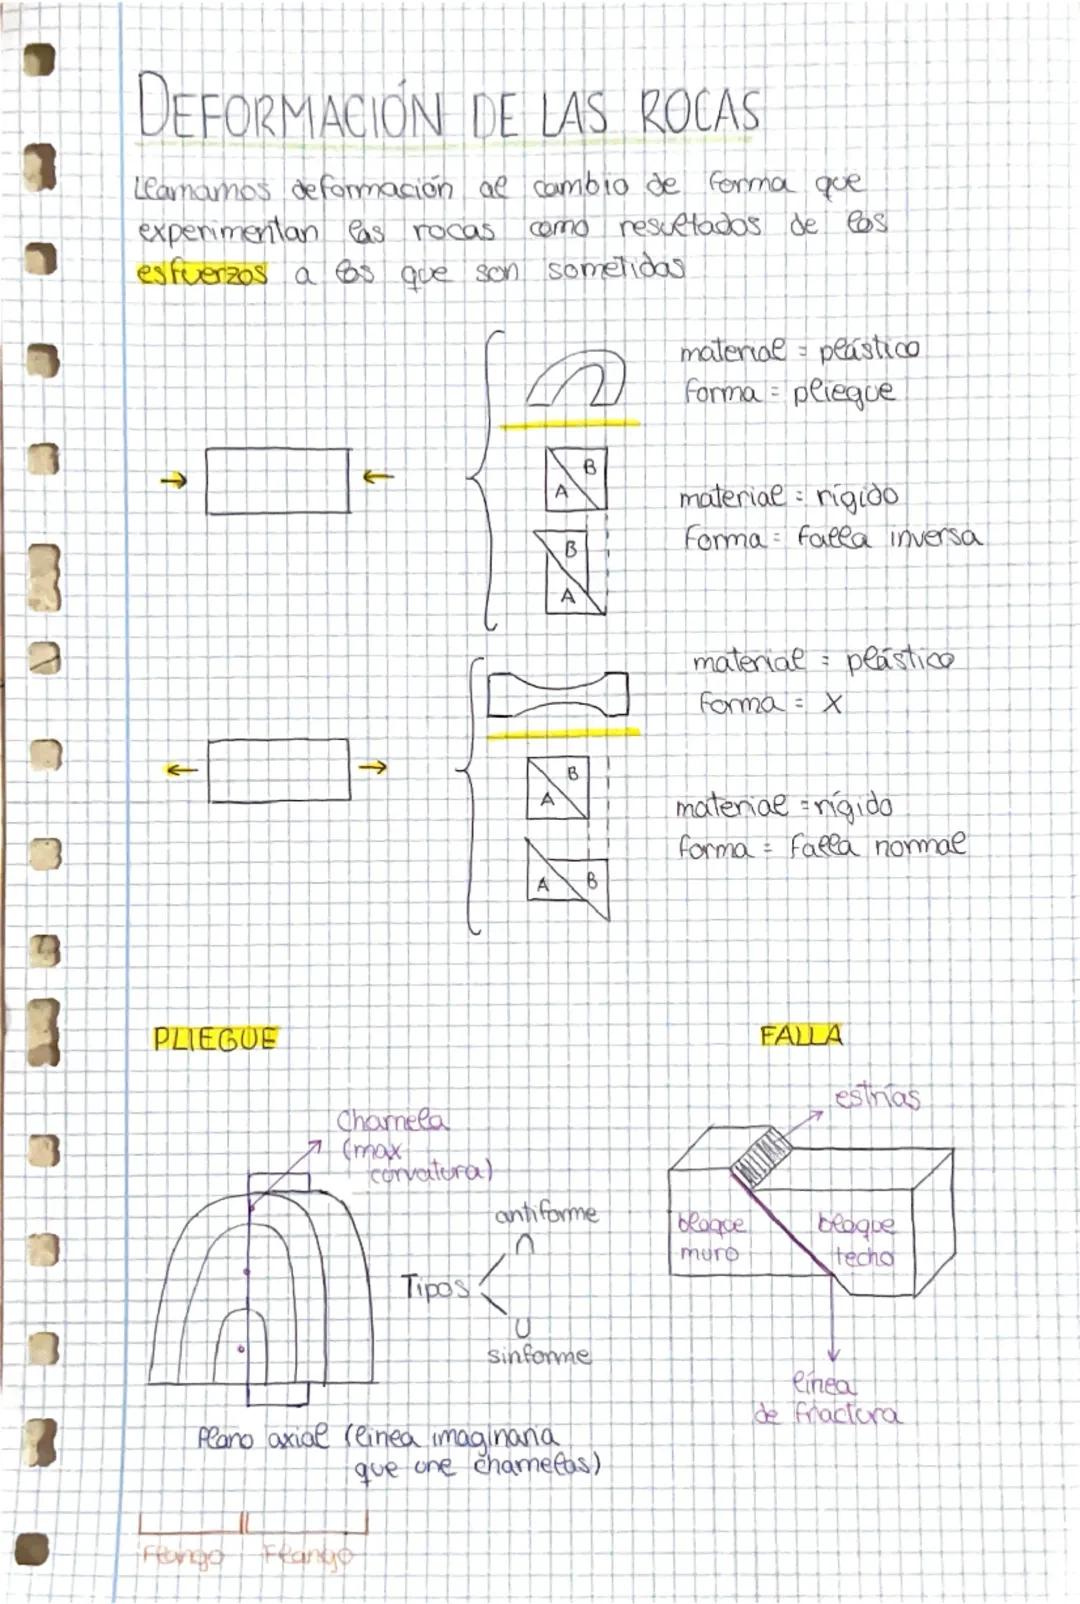 DEFORMACIÓN DE LAS ROCAS
Llamamos deformación al cambio de forma que
experimentan las rocas como resultados de los
esfuerzos a los que son sometidas
material = plástico
forma = pliegue
B
A
material = rígido
forma = falla inversa
B
A
material = plástico
forma = X
B
A
material = rígido
forma = falla normal
A B
PLIEGUE
FALLA
estrías
Charnela
(max
corvatura)
antiforme
∩
Tipos
U
sinforme
bloque
muro
bloque
techo
línea
de fractura
Plano axial (línea imaginaria
que une charnelas)
Flango Flango